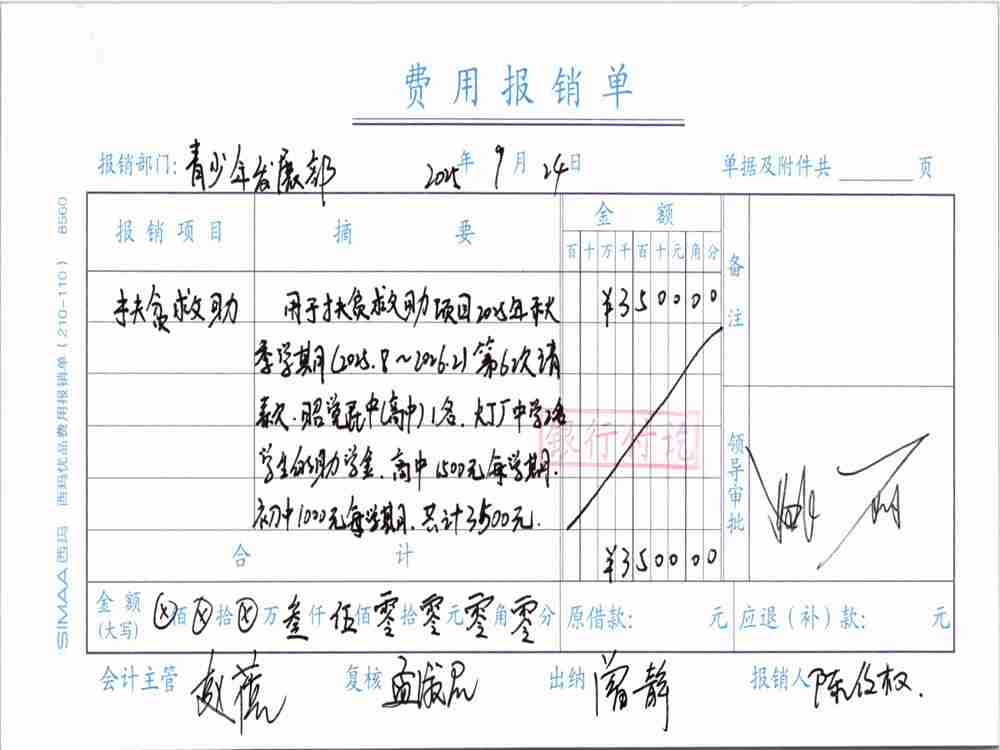 费用报销单
报销部门: 青少年发展部 2025年9月24日 单据及附件共 页
报销项目 摘要 金额 备注
百十万千百十元角分
扶贫救助 用于扶贫救助项目2025年秋 ¥350000
季学期(2025.8~2026.2)第6次请
款.昭觉民中(高中)1名.大厂中学2名
学生的助学金.高中1500元每学期.
初中1000元每学期.共计3500元.
银行付讫
领导审批
合计 ¥350000
金额(大写) ⊗佰⊗拾⊗万叁仟伍佰零拾零元零角零分 原借款: 元 应退(补)款: 元
会计主管 赵蓓 复核 孟淑君 出纳 曾静 报销人 陈仕权.
SIMAA西玛 西玛优品费用报销单(210-110) 8560